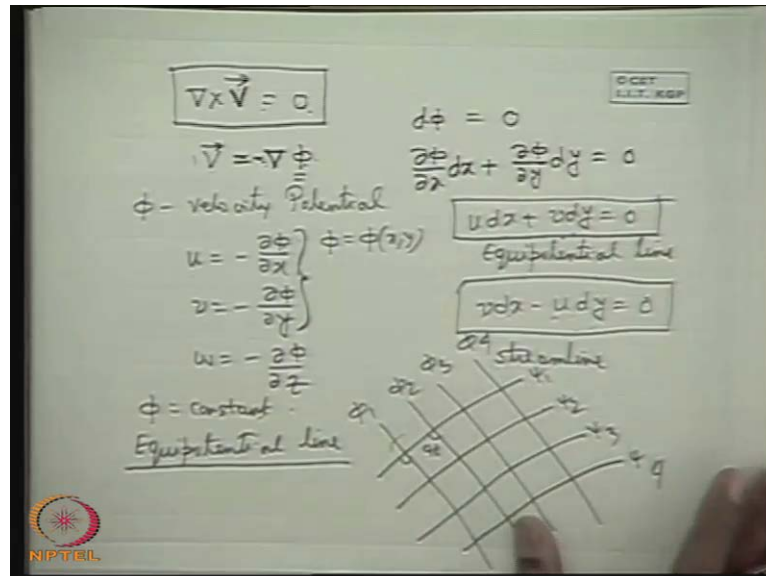 ∇×V⃗ = 0
V⃗ = -∇ϕ
ϕ - velocity Potential
u = - ∂ϕ/∂x } ϕ = ϕ(x,y)
v = - ∂ϕ/∂y
w = - ∂ϕ/∂z
ϕ = constant.
Equipotential line
dϕ = 0
∂ϕ/∂x dx + ∂ϕ/∂y dy = 0
udx + vdy = 0
Equipotential line
vdx - udy = 0
streamline
ϕ1 ϕ2 ϕ3 ϕ4
ψ1
ψ2
ψ3
ψ4
90
© CET
I.I.T. KGP
NPTEL